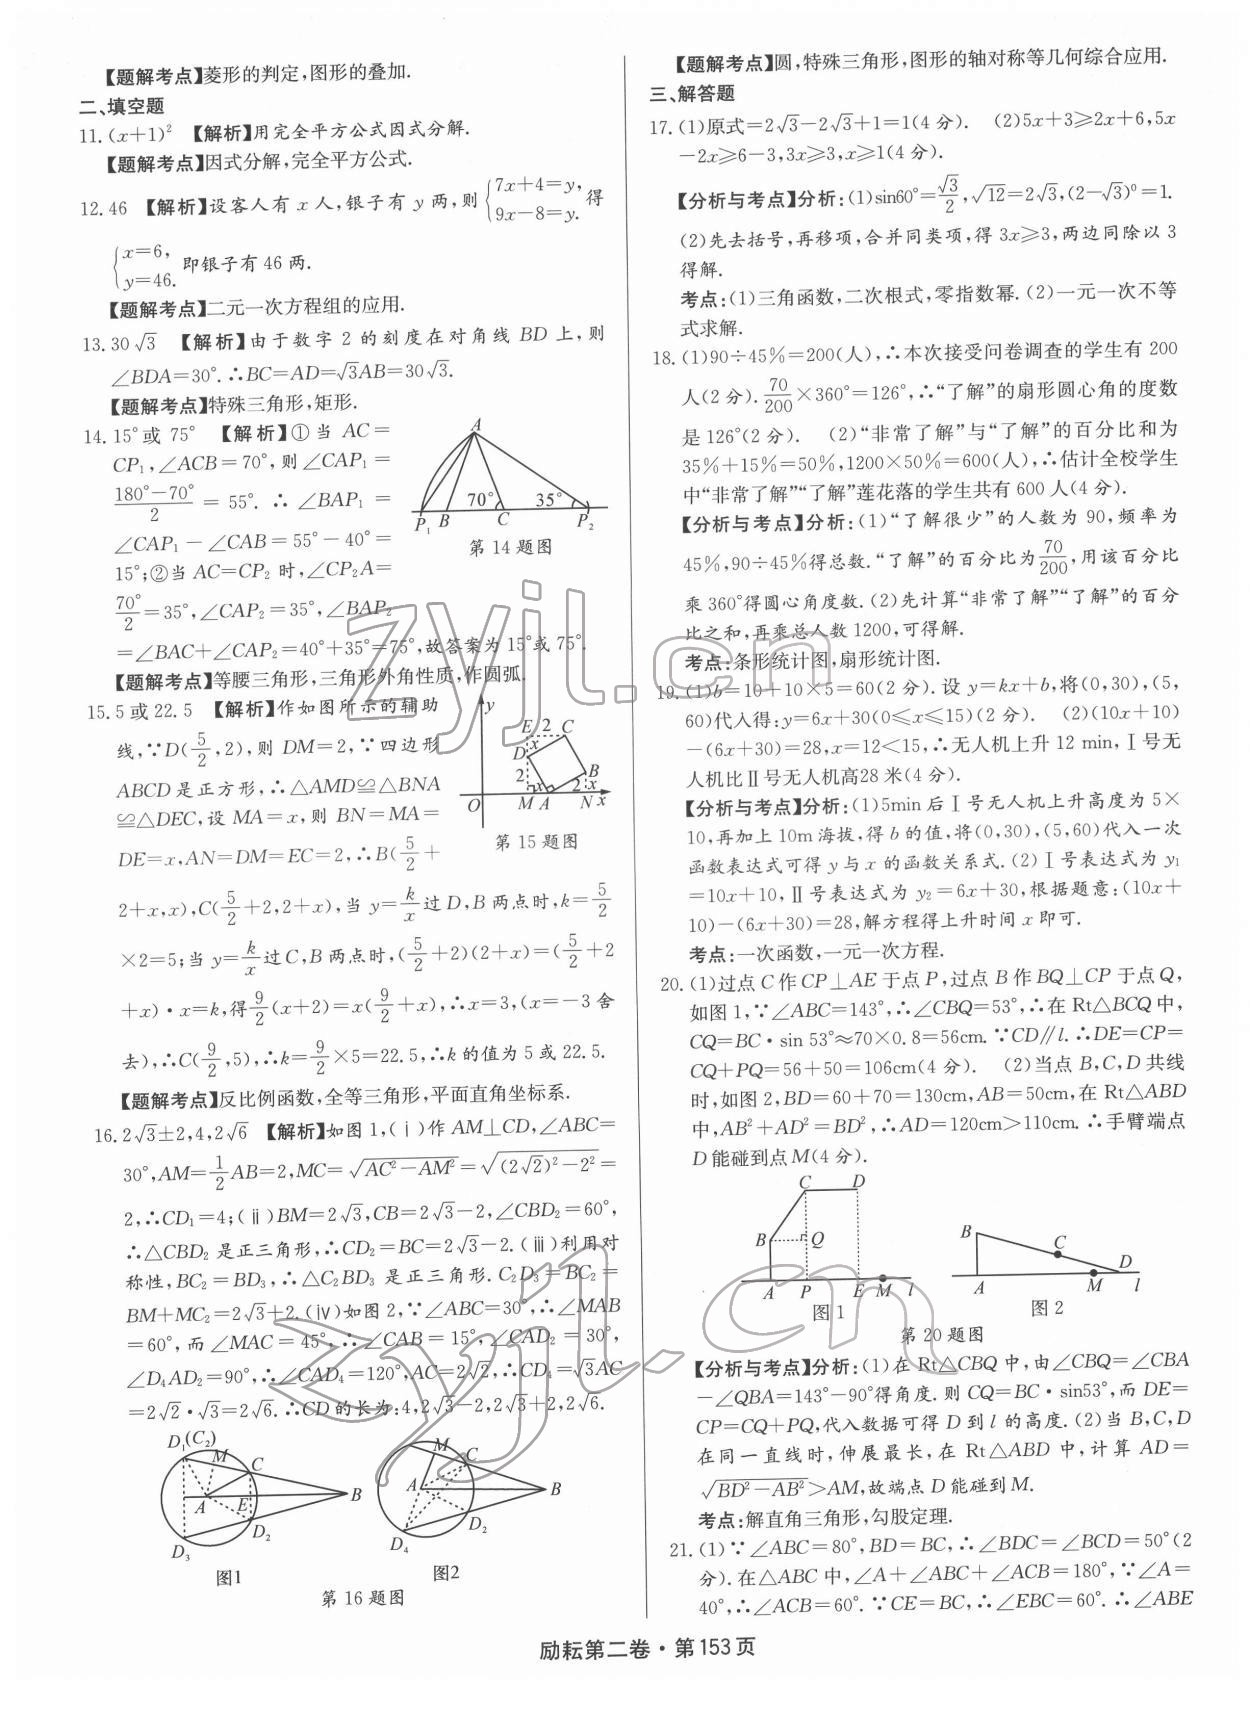 【题解考点】菱形的判定,图形的叠加.
二、填空题
11.(x+1)² 【解析】用完全平方公式因式分解.
【题解考点】因式分解,完全平方公式.
12.46 【解析】设客人有 x 人,银子有 y 两,则{7x+4=y, 9x-8=y. 得
{x=6, y=46. 即银子有 46 两.
【题解考点】二元一次方程组的应用.
13.30√3 【解析】由于数字 2 的刻度在对角线 BD 上,则
∠BDA=30°.∴BC=AD=√3AB=30√3.
【题解考点】特殊三角形,矩形.
14.15°或 75° 【解析】①当 AC=
CP₁,∠ACB=70°,则∠CAP₁=
(180°-70°)/2 = 55°. ∴ ∠BAP₁ =
∠CAP₁-∠CAB=55°-40°=
15°;②当 AC=CP₂ 时,∠CP₂A=
70°/2=35°,∠CAP₂=35°,∠BAP₂
=∠BAC+∠CAP₂=40°+35°=75°,故答案为 15°或 75°.
A
70°
35°
P₁ B C P₂
第 14 题图
【题解考点】等腰三角形,三角形外角性质,作圆弧.
15.5 或 22.5 【解析】作如图所示的辅助
线,∵D(5/2,2),则 DM=2,∵四边形
ABCD 是正方形,∴△AMD≌△BNA
≌△DEC,设 MA=x,则 BN=MA=
DE=x,AN=DM=EC=2,∴B(5/2+
2+x,x),C(5/2+2,2+x),当 y=k/x过 D,B 两点时,k=5/2
×2=5;当 y=k/x过 C,B 两点时,(5/2+2)(2+x)=(5/2+2
+x)·x=k,得9/2(x+2)=x(9/2+x),∴x=3,(x=-3 舍
去),∴C(9/2,5),∴k=9/2×5=22.5,∴k 的值为 5 或 22.5.
y
E 2 C
x
D
2
B
2 x
O M A N x
第 15 题图
【题解考点】反比例函数,全等三角形,平面直角坐标系.
16.2√3±2,4,2√6 【解析】如图 1,(ⅰ)作 AM⊥CD,∠ABC=
30°,AM=1/2AB=2,MC=√(AC²-AM²)=√((2√2)²-2²)=
2,∴CD₁=4;(ⅱ)BM=2√3,CB=2√3-2,∠CBD₂=60°,
∴△CBD₂ 是正三角形,∴CD₂=BC=2√3-2.(ⅲ)利用对
称性,BC₂=BD₃,∴△C₂BD₃ 是正三角形.C₂D₃=BC₂=
BM+MC₂=2√3+2.(ⅳ)如图 2,∵∠ABC=30°,∴∠MAB
=60°,而∠MAC=45°,∴∠CAB=15°,∠CAD₂=30°,
∠D₄AD₂=90°,∴∠CAD₄=120°,AC=2√2,∴CD₄=√3AC
=2√2·√3=2√6.∴CD 的长为:4,2√3-2,2√3+2,2√6.
D₁(C₂)
M
C
A
E
B
D₂
D₃
图1
M
C
A
B
D₂
D₄
图2
第 16 题图
【题解考点】圆,特殊三角形,图形的轴对称等几何综合应用.
三、解答题
17.(1)原式=2√3-2√3+1=1(4 分). (2)5x+3≥2x+6,5x
-2x≥6-3,3x≥3,x≥1(4 分).
【分析与考点】分析:(1)sin60°=√3/2,√12=2√3,(2-√3)⁰=1.
(2)先去括号,再移项,合并同类项,得 3x≥3,两边同除以 3
得解.
考点:(1)三角函数,二次根式,零指数幂.(2)一元一次不等
式求解.
18.(1)90÷45%=200(人),∴本次接受问卷调查的学生有 200
人(2 分).70/200×360°=126°,∴“了解”的扇形圆心角的度数
是 126°(2 分). (2)“非常了解”与“了解”的百分比和为
35%+15%=50%,1200×50%=600(人),∴估计全校学生
中“非常了解”“了解”莲花落的学生共有 600 人(4 分).
【分析与考点】分析:(1)“了解很少”的人数为 90,频率为
45%,90÷45%得总数.“了解”的百分比为70/200,用该百分比
乘 360°得圆心角度数.(2)先计算“非常了解”“了解”的百分
比之和,再乘总人数 1200,可得解.
考点:条形统计图,扇形统计图.
19.(1)b=10+10×5=60(2 分).设 y=kx+b,将(0,30),(5,
60)代入得:y=6x+30(0≤x≤15)(2 分). (2)(10x+10)
-(6x+30)=28,x=12<15,∴无人机上升 12 min,Ⅰ号无
人机比Ⅱ号无人机高28 米(4 分).
【分析与考点】分析:(1)5min 后Ⅰ号无人机上升高度为 5×
10,再加上 10m 海拔,得 b 的值,将(0,30),(5,60)代入一次
函数表达式可得 y 与 x 的函数关系式.(2)Ⅰ号表达式为 y₁
=10x+10,Ⅱ号表达式为 y₂=6x+30,根据题意:(10x+
10)-(6x+30)=28,解方程得上升时间 x 即可.
考点:一次函数,一元一次方程.
20.(1)过点 C 作 CP⊥AE 于点 P,过点 B 作 BQ⊥CP 于点 Q,
如图 1,∵∠ABC=143°,∴∠CBQ=53°,∴在 Rt△BCQ 中,
CQ=BC·sin 53°≈70×0.8=56cm.∵CD∥l.∴DE=CP=
CQ+PQ=56+50=106cm(4 分). (2)当点 B,C,D 共线
时,如图 2,BD=60+70=130cm,AB=50cm,在 Rt△ABD
中,AB²+AD²=BD²,∴AD=120cm>110cm.∴手臂端点
D 能碰到点 M(4 分).
C D
B Q
A P E M l
图 1
B
C
D
A M l
图 2
第 20 题图
【分析与考点】分析:(1)在 Rt△CBQ 中,由∠CBQ=∠CBA
-∠QBA=143°-90°得角度.则 CQ=BC·sin53°,而 DE=
CP=CQ+PQ,代入数据可得 D 到 l 的高度.(2)当 B,C,D
在同一直线时,伸展最长,在 Rt△ABD 中,计算 AD=
√(BD²-AB²)>AM,故端点 D 能碰到 M.
考点:解直角三角形,勾股定理.
21.(1)∵∠ABC=80°,BD=BC,∴∠BDC=∠BCD=50°(2
分).在△ABC 中,∠A+∠ABC+∠ACB=180°,∵∠A=
40°,∴∠ACB=60°.∵CE=BC,∴∠EBC=60°.∴∠ABE
励耘第二卷·第 153 页
zyjl.cn
zyjl.cn